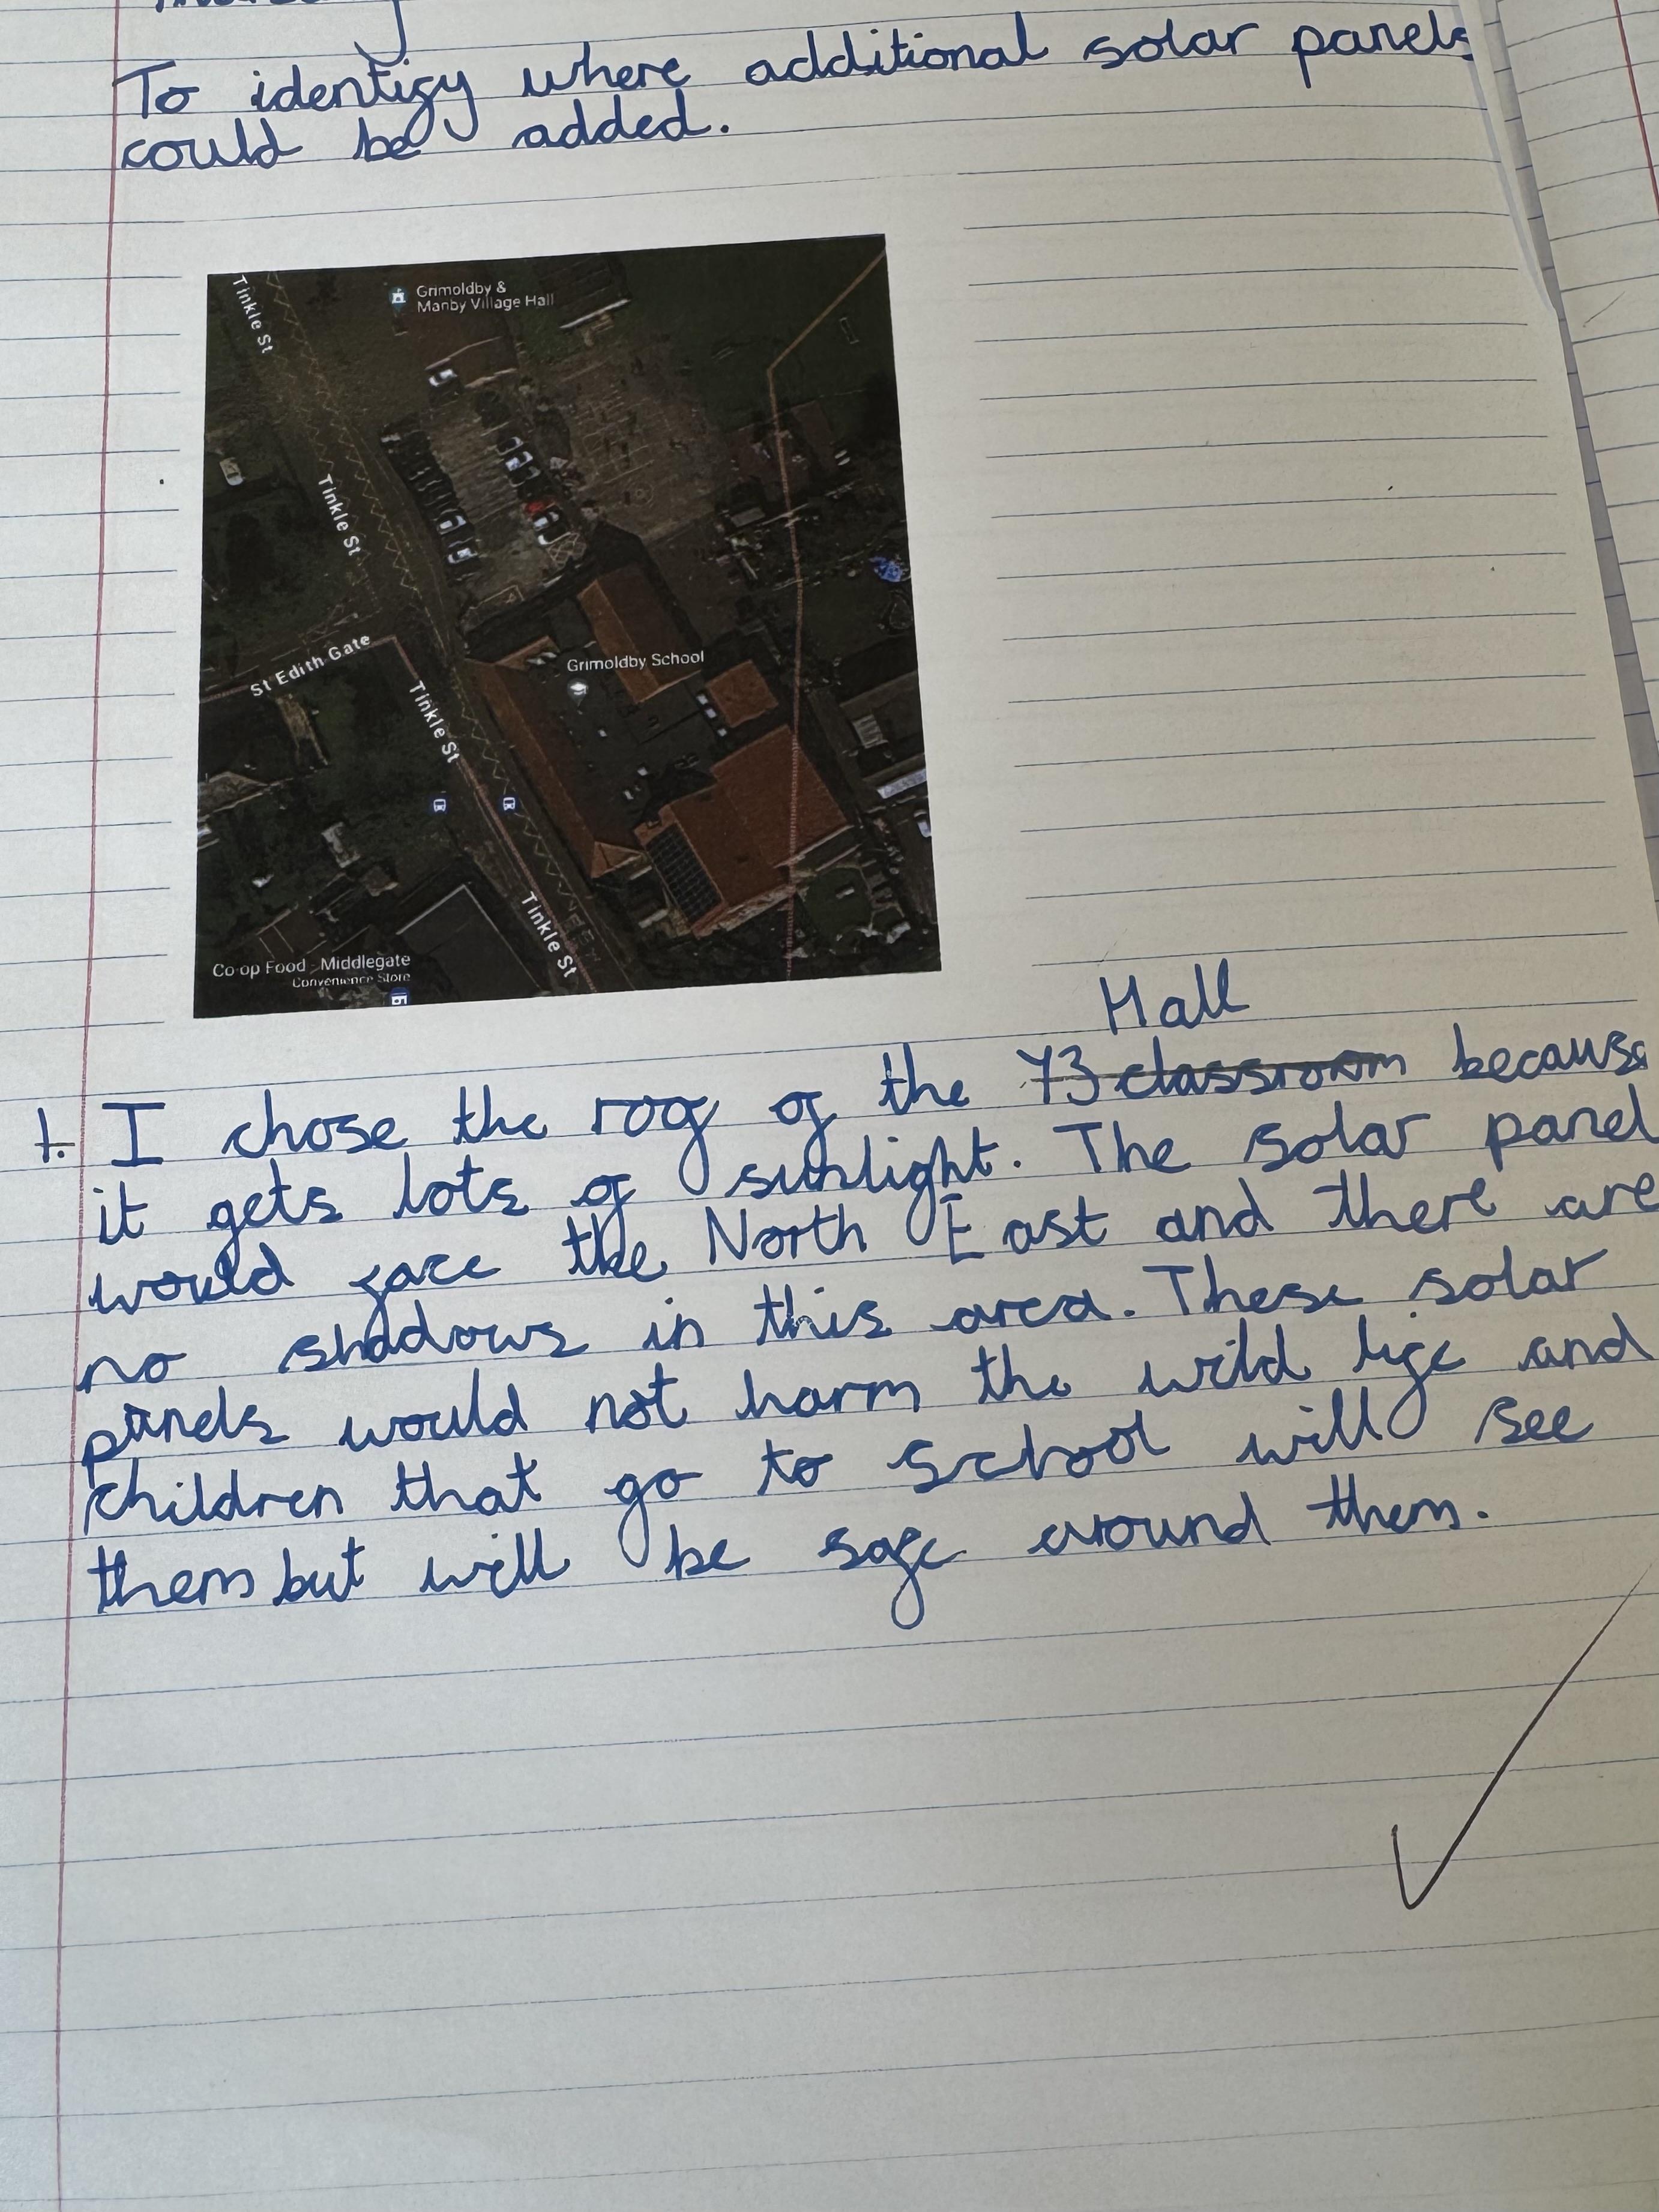 To identify where additional solar panels
could be added.
Grimoldby &
Manby Village Hall
Tinkle St
Tinkle St
St Edith Gate
Grimoldby School
Tinkle St
Tinkle St
Co-op Food - Middlegate
Convenience Store
Hall
1. I chose the roof of the Y3 classroom because
it gets lots of sunlight. The solar panel
would face the North East and there are
no shadows in this area. These solar
panels would not harm the wild life and
children that go to school will see
them but will be safe around them.